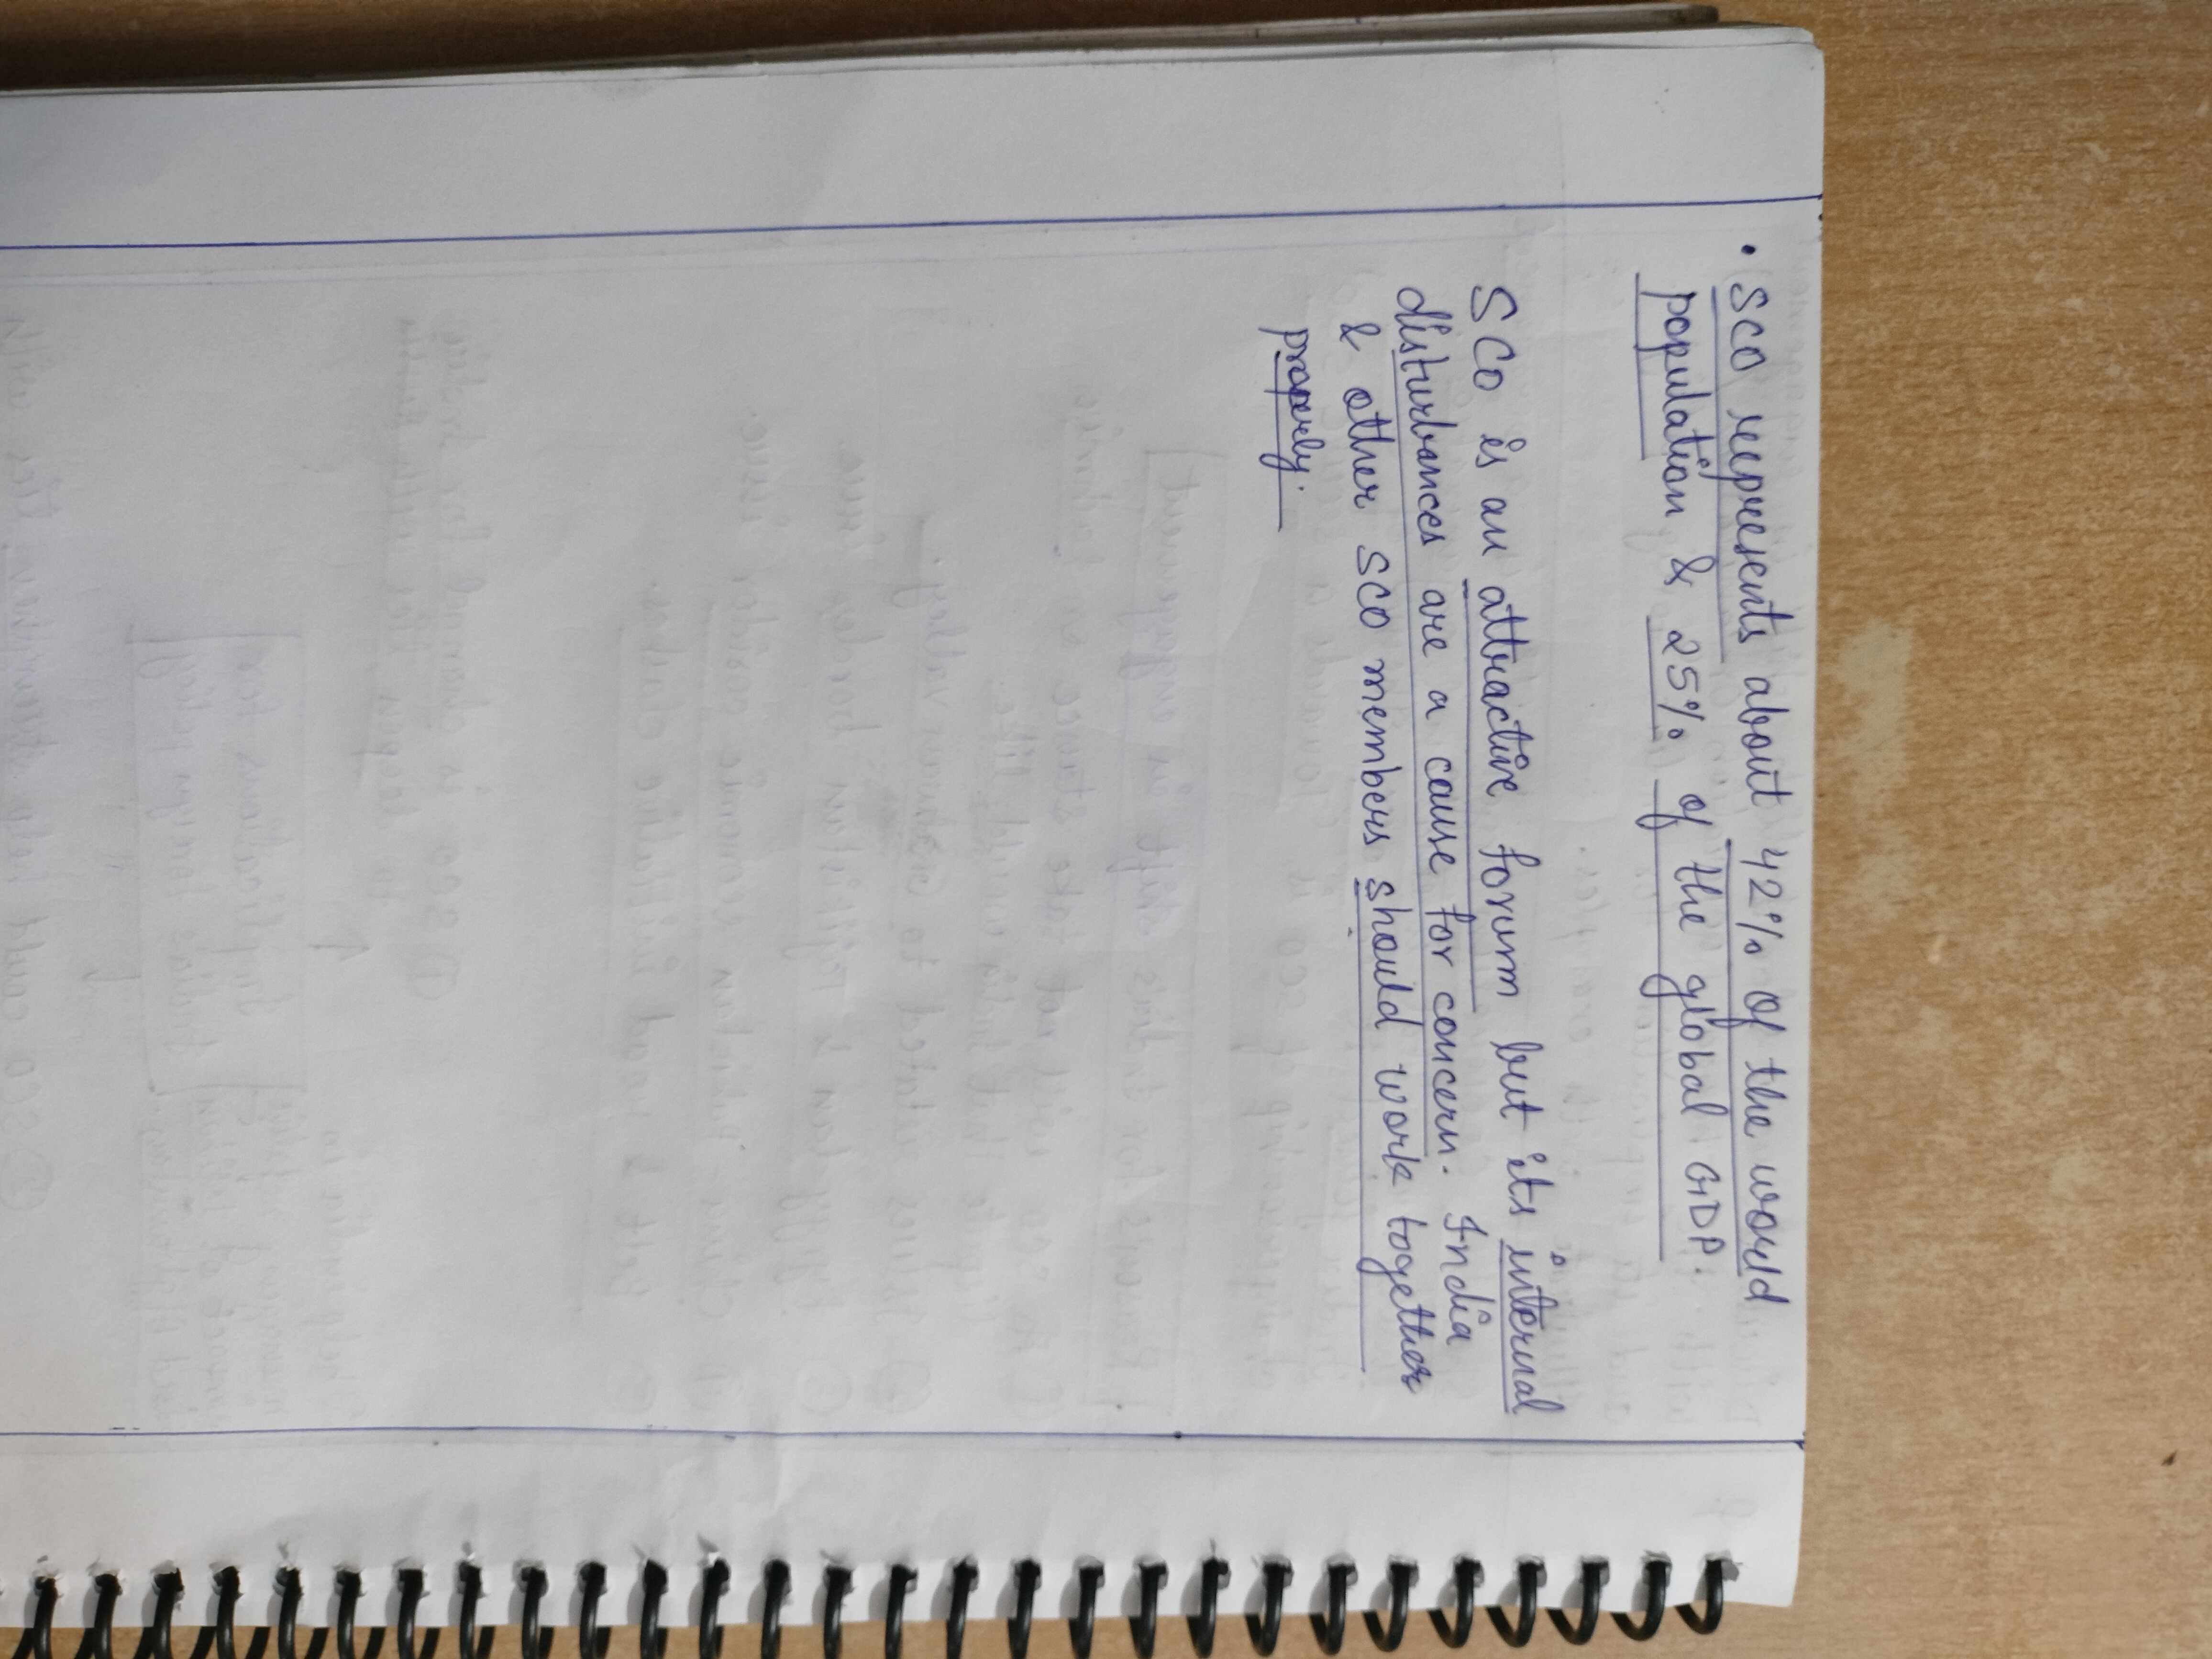 • SCO represents about 42% of the world
population & 25% of the global GDP.
SCO is an attractive forum but its internal
disturbances are a cause for concern. India
& other SCO members should work together
properly.